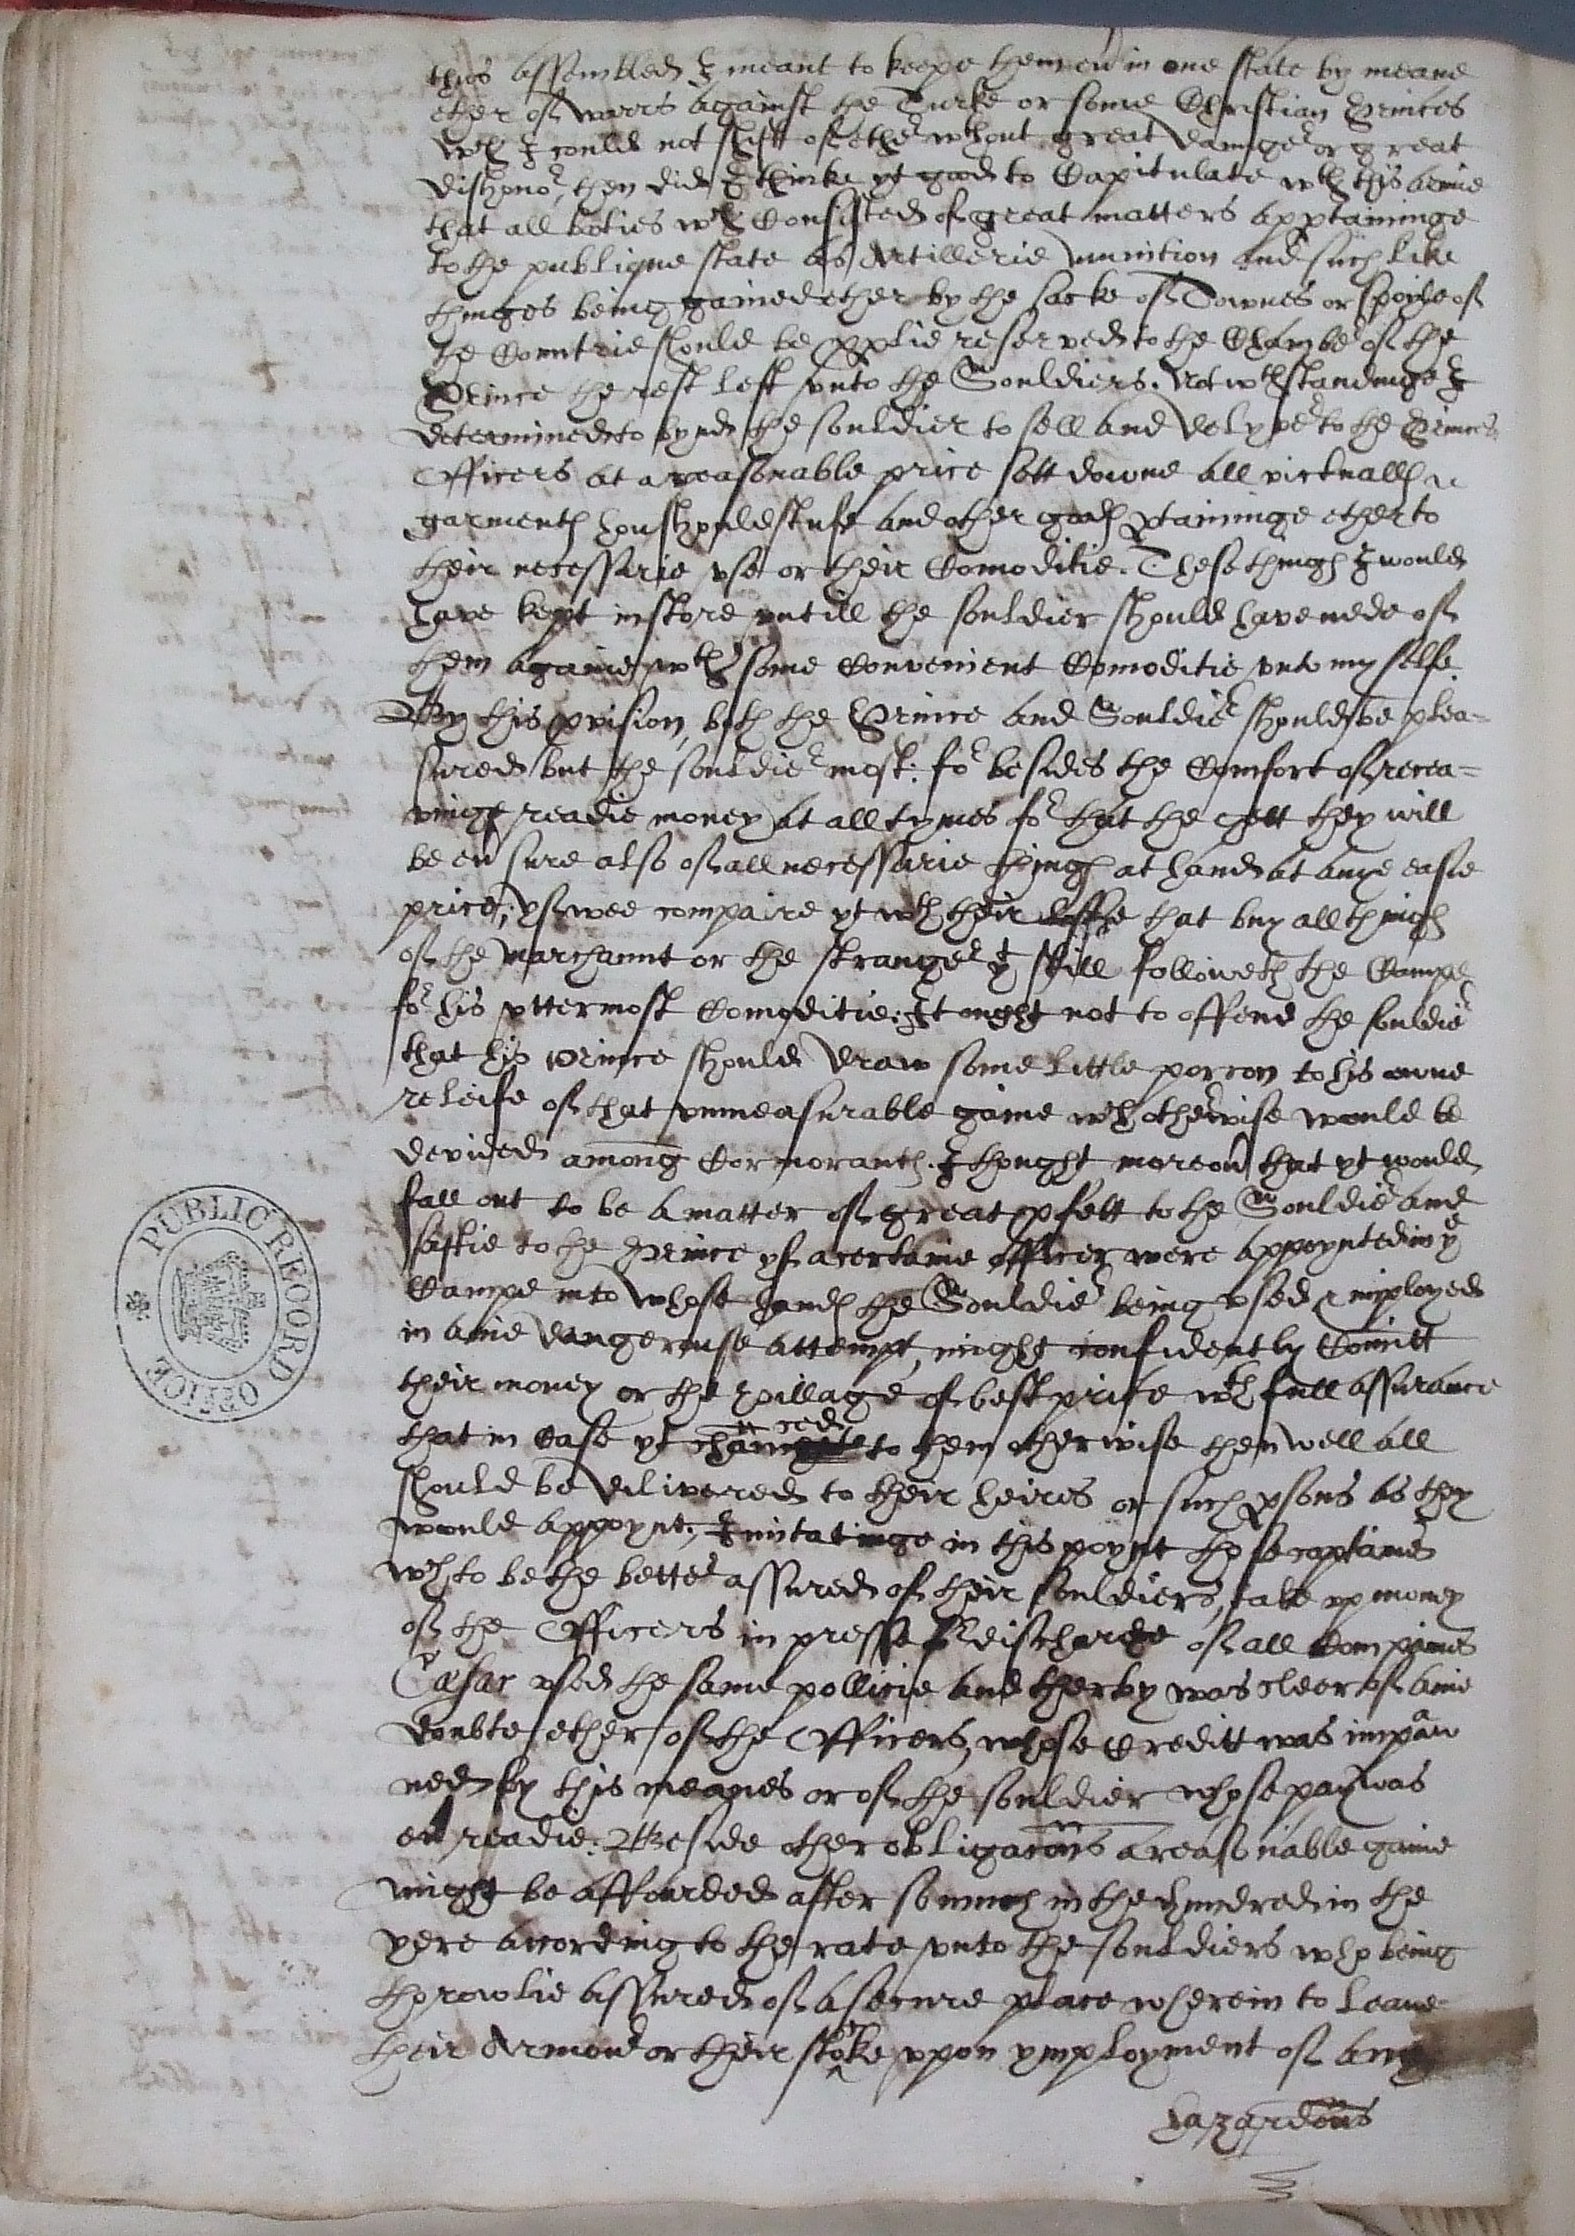 thus assembled I meant to keepe them eũ in one state by meane
ether of warrs against the Turke or some Christian Princes
wch I could not shift of ether wthout great damage or great
dishonor, then did I thinke yt good to Capitulate wth this armie
that all boties wch Consisted of great matters apptaininge
to the publique state as Artillerie munition and such like
thinges being gained ether by the sacke of Townes or spoyle of
the Countrie should be pptie reserved to the Chamber of the
Prince the rest left vnto the Souldiers. Notwthstandinge I
determined to bynd the souldier to sell and delyver to the Princes
Officers at a reasonable price sett downe all victualls
garments houshouldstufe and other goods ptaininge ether to
their necessarie vse or their Comoditie. These things I would
have kept in store untill the souldier should have nede of
them againe wth some Convenient Comoditie vnto my selfe.
By this pvision, both the Prince and Souldier should be plea=
sured but the souldier most: for besides the Comfort of recea=
vinge readie money at all tymes for that the gett they will
be eũ sure also of all necessarie things at hand at anye easie
price, yf wee compaire yt wth their that buy all things
of the marchaunt or the stranger yt still followeth the Campe
for his vttermost Comoditie: It ought not to offend the souldier
that his Prince should draw some little porcon to his owne
releife of that vnmeasurable gaine wch otherwise would be
devided among Cormorants. I thought moreoũ that yt would
fall out to be a matter of great pfett to the Souldier and
saftie to the Prince yf a certaine officer were appoynted in ye
Campe into whose hands the Souldier being vsed & imployed
in anie dangerouse attempt, might confidently Comitt
their money or the pillage of best price wth full assurance
that in Case yt chaunced to them otherwise then well all
should be delivered to their heires or such psons as they
would appoynt, Imitatinge in this poynt those captaines
wch to be the better assured of their souldiers, take vp money
of the Officers in presse & discharge of all Companies
Cæsar vsed the same pollicie and therby was cleer of anie
doubte ether of the Officers, whose Creditt was impaw
ned by this meanes or of the souldier whose pay was
eũ readie: Beside other obligacons a reasonable gaine
might be affourded after so much in the hundred in the
yere according to the rate vnto the souldiers who being
throwlie assured of a secure place wherein to leave
their Armour or their stoke vppon ymployment of any
hazardous
PUBLIC RECORD OFFICE